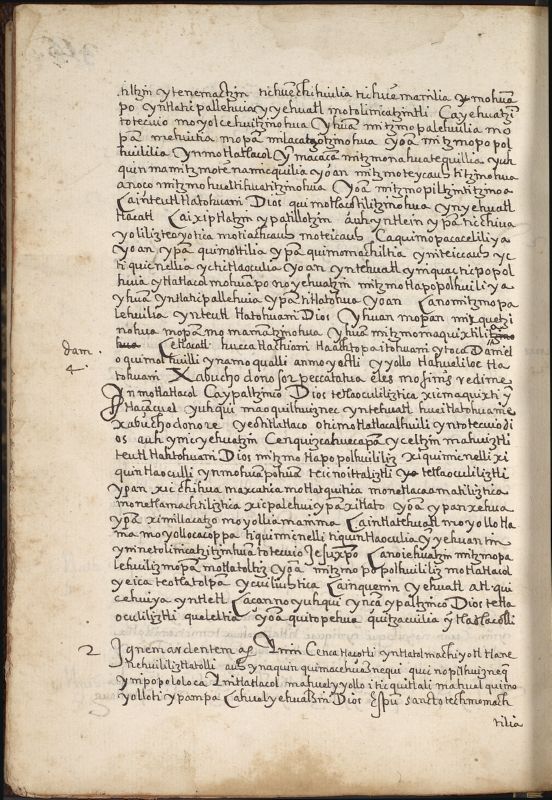 tiltzin ytenemactzin tichuechihuilia tichue marilia ymohua
po yntlatipallehuia yyehuatl motolinicatzintli Ca yehuatzi
totecuio moyolcehuitzinohua Yhua mitzmopalehuilia mo
pa mehuitia mopa mlacatzotzinohua Yoa mitzmopopol
huililia Ynmotlatlacol Y macaca mitzmonahuatequillia yuh
quin mamitzmotenamicquilia yoan mitzmoteycauhtitzinohua
anoço mitzmohueltihuatitzinohua Yoa mitzmopiltzintitzinoa
Ca inteutl tlatohuani Dios quimotlaçotilitzinohua yn yehuatl
tlacatl Ca ixiptlatzin ypatillotzin auh yntlein ypa ticchiua
yolilizteoyotica motiachcauh moteicauh Ca quimopacaceliliya
yoan ypa quimottilia ypa quimomachiltia ynteiccauh yc
tiquicnellia yc titlaoculia yoan yntehuatl yniquac ticpopol
huia ytlatlacol mohuapo no yehuatzin mitzmotlapopolhuiliya
yhua yntlatipallehuia ypa titlatohua yoan Ca no mitzmopa
lehuilia ynteutl tlatohuani Dios yhuan mopan mixquetzi
nohua mopa mo mamatzinohua yhua mitzmomaquixtilitzino
hua Cetlacatl huecatlachiani tlaachtopaitohuani ytoca Daniel
dam. 4.
oquimolhuilli ynamo qualli anmo yectli yyollo tlahueliloc tla
tohuani Xabuchodonosor peccata tua eleemosinis redime
Yn motlatlacol Ca ypaltzinco Dios tetlaoculiliztica ximaquixti y
tlacaçuel yuhqui maoquilhuiznec yntehuatl hueitlatohuanie
xabuchodonore yeohtlatlaco otimotlatlacalhuili yntotecuio di
os auh ymicyehuatzin Cenquizcahuecapa ycel tzin mahuiztli
teutl tlahtohuani Dios mitzmotlapopolhuililiz xiquimicnelli xi
quintlaoculli ynmohuapohua teicnoittaliztli yo tetlaoculiliztli
ypan xicchihua maxcahia motlatquitia monetlacamatiliztica
monetlamachtiliztica xicpalehui ypa xitlato yoa ypan xehua
ypa ximillacatzo moyollia mamma Ca intlatehuatl moyollo tla
ma moyollocacoppa tiquimicnelli tiquintlaoculia yyehuantin
yninetolinicatzitzinhua totecuio Jesuxpo Ca no iehuatzin mitzmopa
lehuiliz mopa motlatoltiz yoa mitzmopopolhuililiz motlatlacol
yeica teotlatolpa ycuiliuhtica Ca inquenin yehuatl atl qui
cehuiya yntletl Ca canno yuhqui ynca ypaltzinco Dios tetla
oculiliztli quelcehia yoa quitopehua quitzacuilia y tlatlacolli
2 Ignem ardentem &c. Ynin Cenca tlaçotli yntlatolmachiyotl tlane
nehuililiztlatolli auh ynaquin quimacehuaznequi quicnopilhuizneq
ynipopololoca Yn tlatlacol mahuelyyollo itic quitlali mahuel quimo
yolloti ypampa Ca huelyehuatzin Dios Espu sancto techmomach
tilia